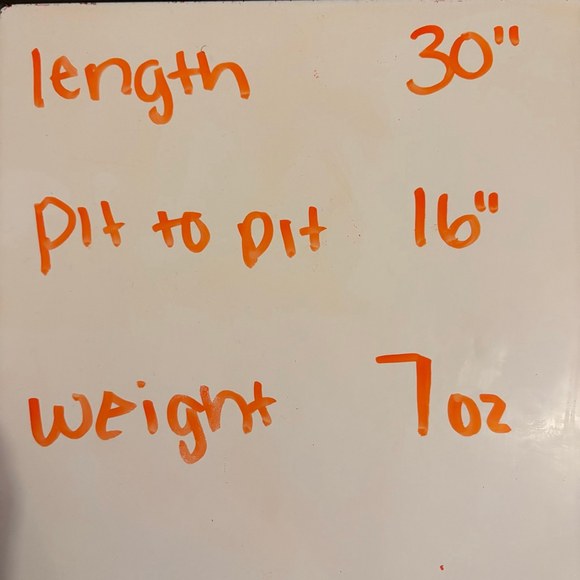 length 30"
pit to pit 16"
weight 7 oz